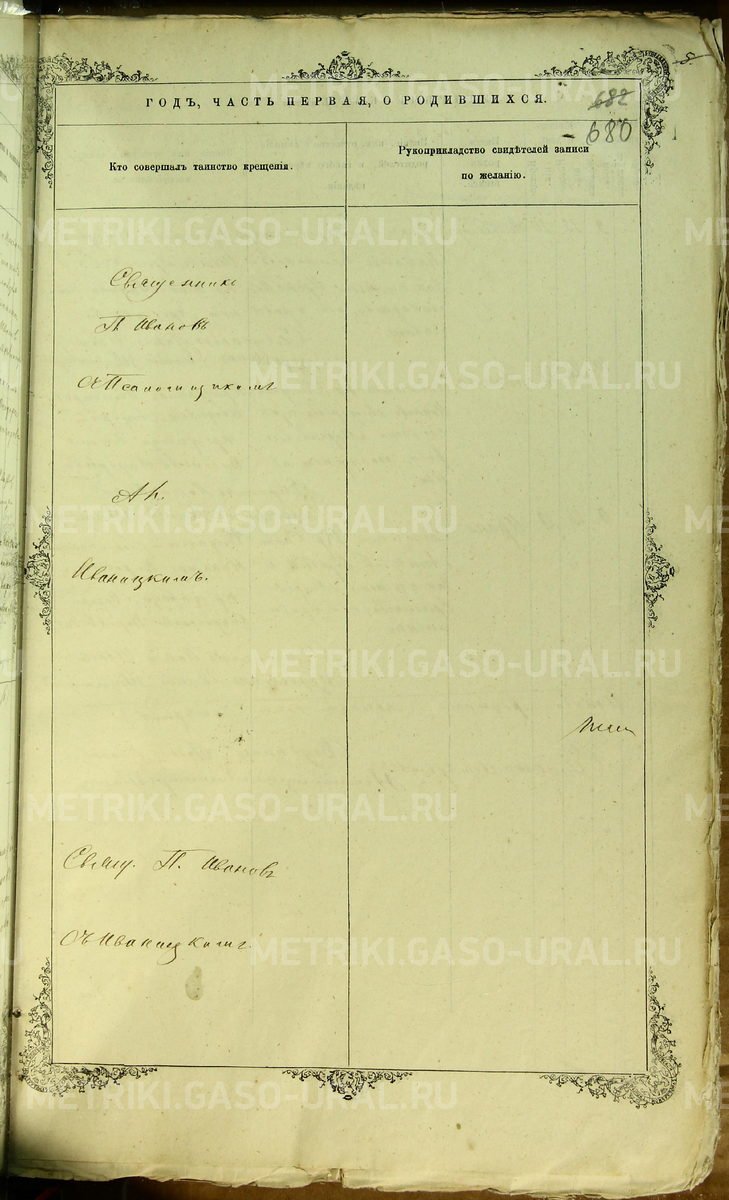 682
ГОДЪ, ЧАСТЬ ПЕРВАЯ, О РОДИВШИХСЯ.
680
Кто совершалъ таинство крещенія.
Рукоприкладство свидѣтелей записи
по желанію.
Священникъ
П. Ивановъ
Иваницкимъ.
Свящ. П. Ивановъ
Съ Иваницкимъ
METRIKI.GASO-URAL.RU